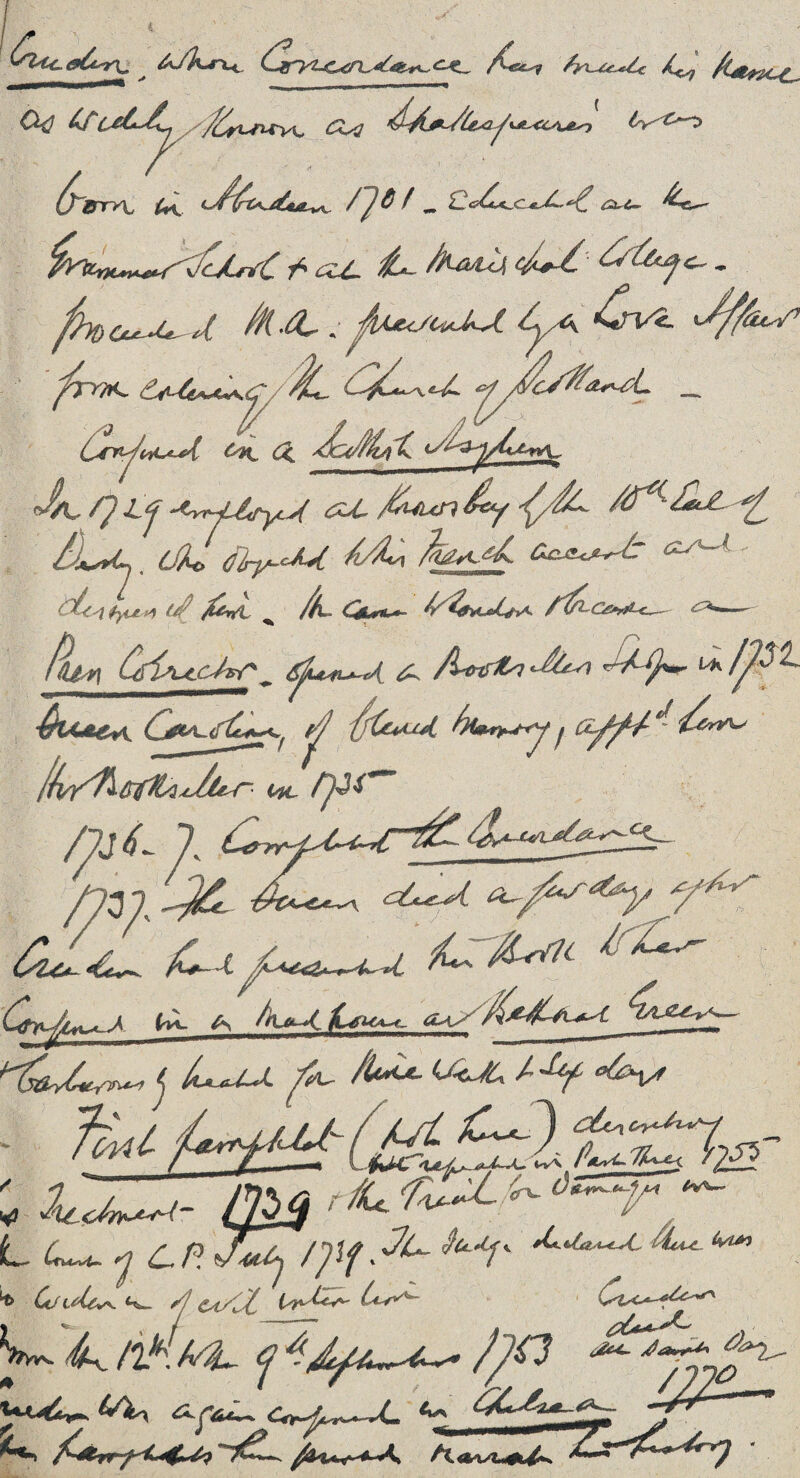 Cruden, whose Concordance has made his Name
as widely Known as Shakespeare's was
born in Aberdeen 1701 - Educated at the
Grammar School & at the Marischal College -
proceeded M.A. prevented by a Love Affair
from entering the Church of Scotland -
Confined in a Scottish Asylum
In 1729 employed at Knowsley by the 10th Earl of
Derby. Who objected to his French accent and
dismissed him. He came to London & became a
Press Corrector. opened a Booksellers Shop in 1732
Queen Caroline, of blessed memory, appt.d him
Her Bookseller in 1735
1736-7. Completed the Concordance
1737. The Queen died a few days after
Cruden had presented his Book to her
Confined in a Mad house at Bethnal Green
Barbarously treated for Nine Weeks & Six days
First pamphlet (not here) describing
but repeated in Part Three 1755
Treatment 1739 & the Trial for Damages in
the Court of C.P. July 1739. The Judge declared there was
no evidence of evil intention
Cruden
died
All Saints Day
1770
From the 12th to the 9th September 1753
Cruden was again confined in Chelsea
the pamphlets here narrate his history.